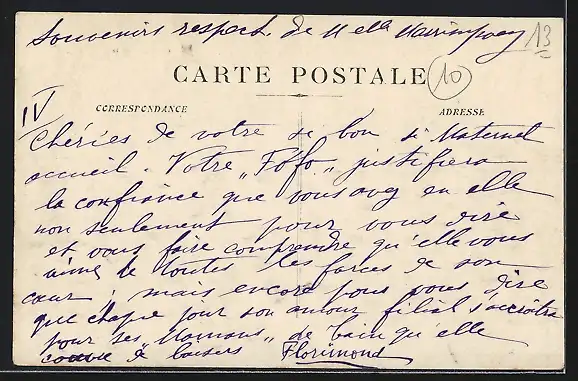 Souvenirs respect. de Melle
13
CARTE POSTALE
10
CORRESPONDANCE
ADRESSE
IV
Chéries de votre si bon si Maternel
accueil. Votre "Fofo" justifiera
la confiance que vous avez en elle
non seulement pour vous dire
et vous faire comprendre qu'elle vous
aime de toutes les forces de son
cœur; mais encore pour vous dire
que chaque jour son amour filial s'accroîtra
pour ses "Mamans" de qu'elle
de baisers Florimond